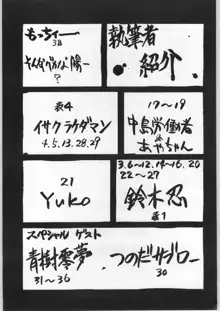 執筆者
紹介
もっちー
38
さんかくがんな陽一
?
表4
イサクラウダマン
4.5.13.28.29
17〜19
中島労働者
&
あやちゃん
21
Yuko
3.6〜12.14〜16.20
22〜27
鈴木忍
表1
スペシャルゲスト
青樹零夢
31〜36
つのだサブロー
30